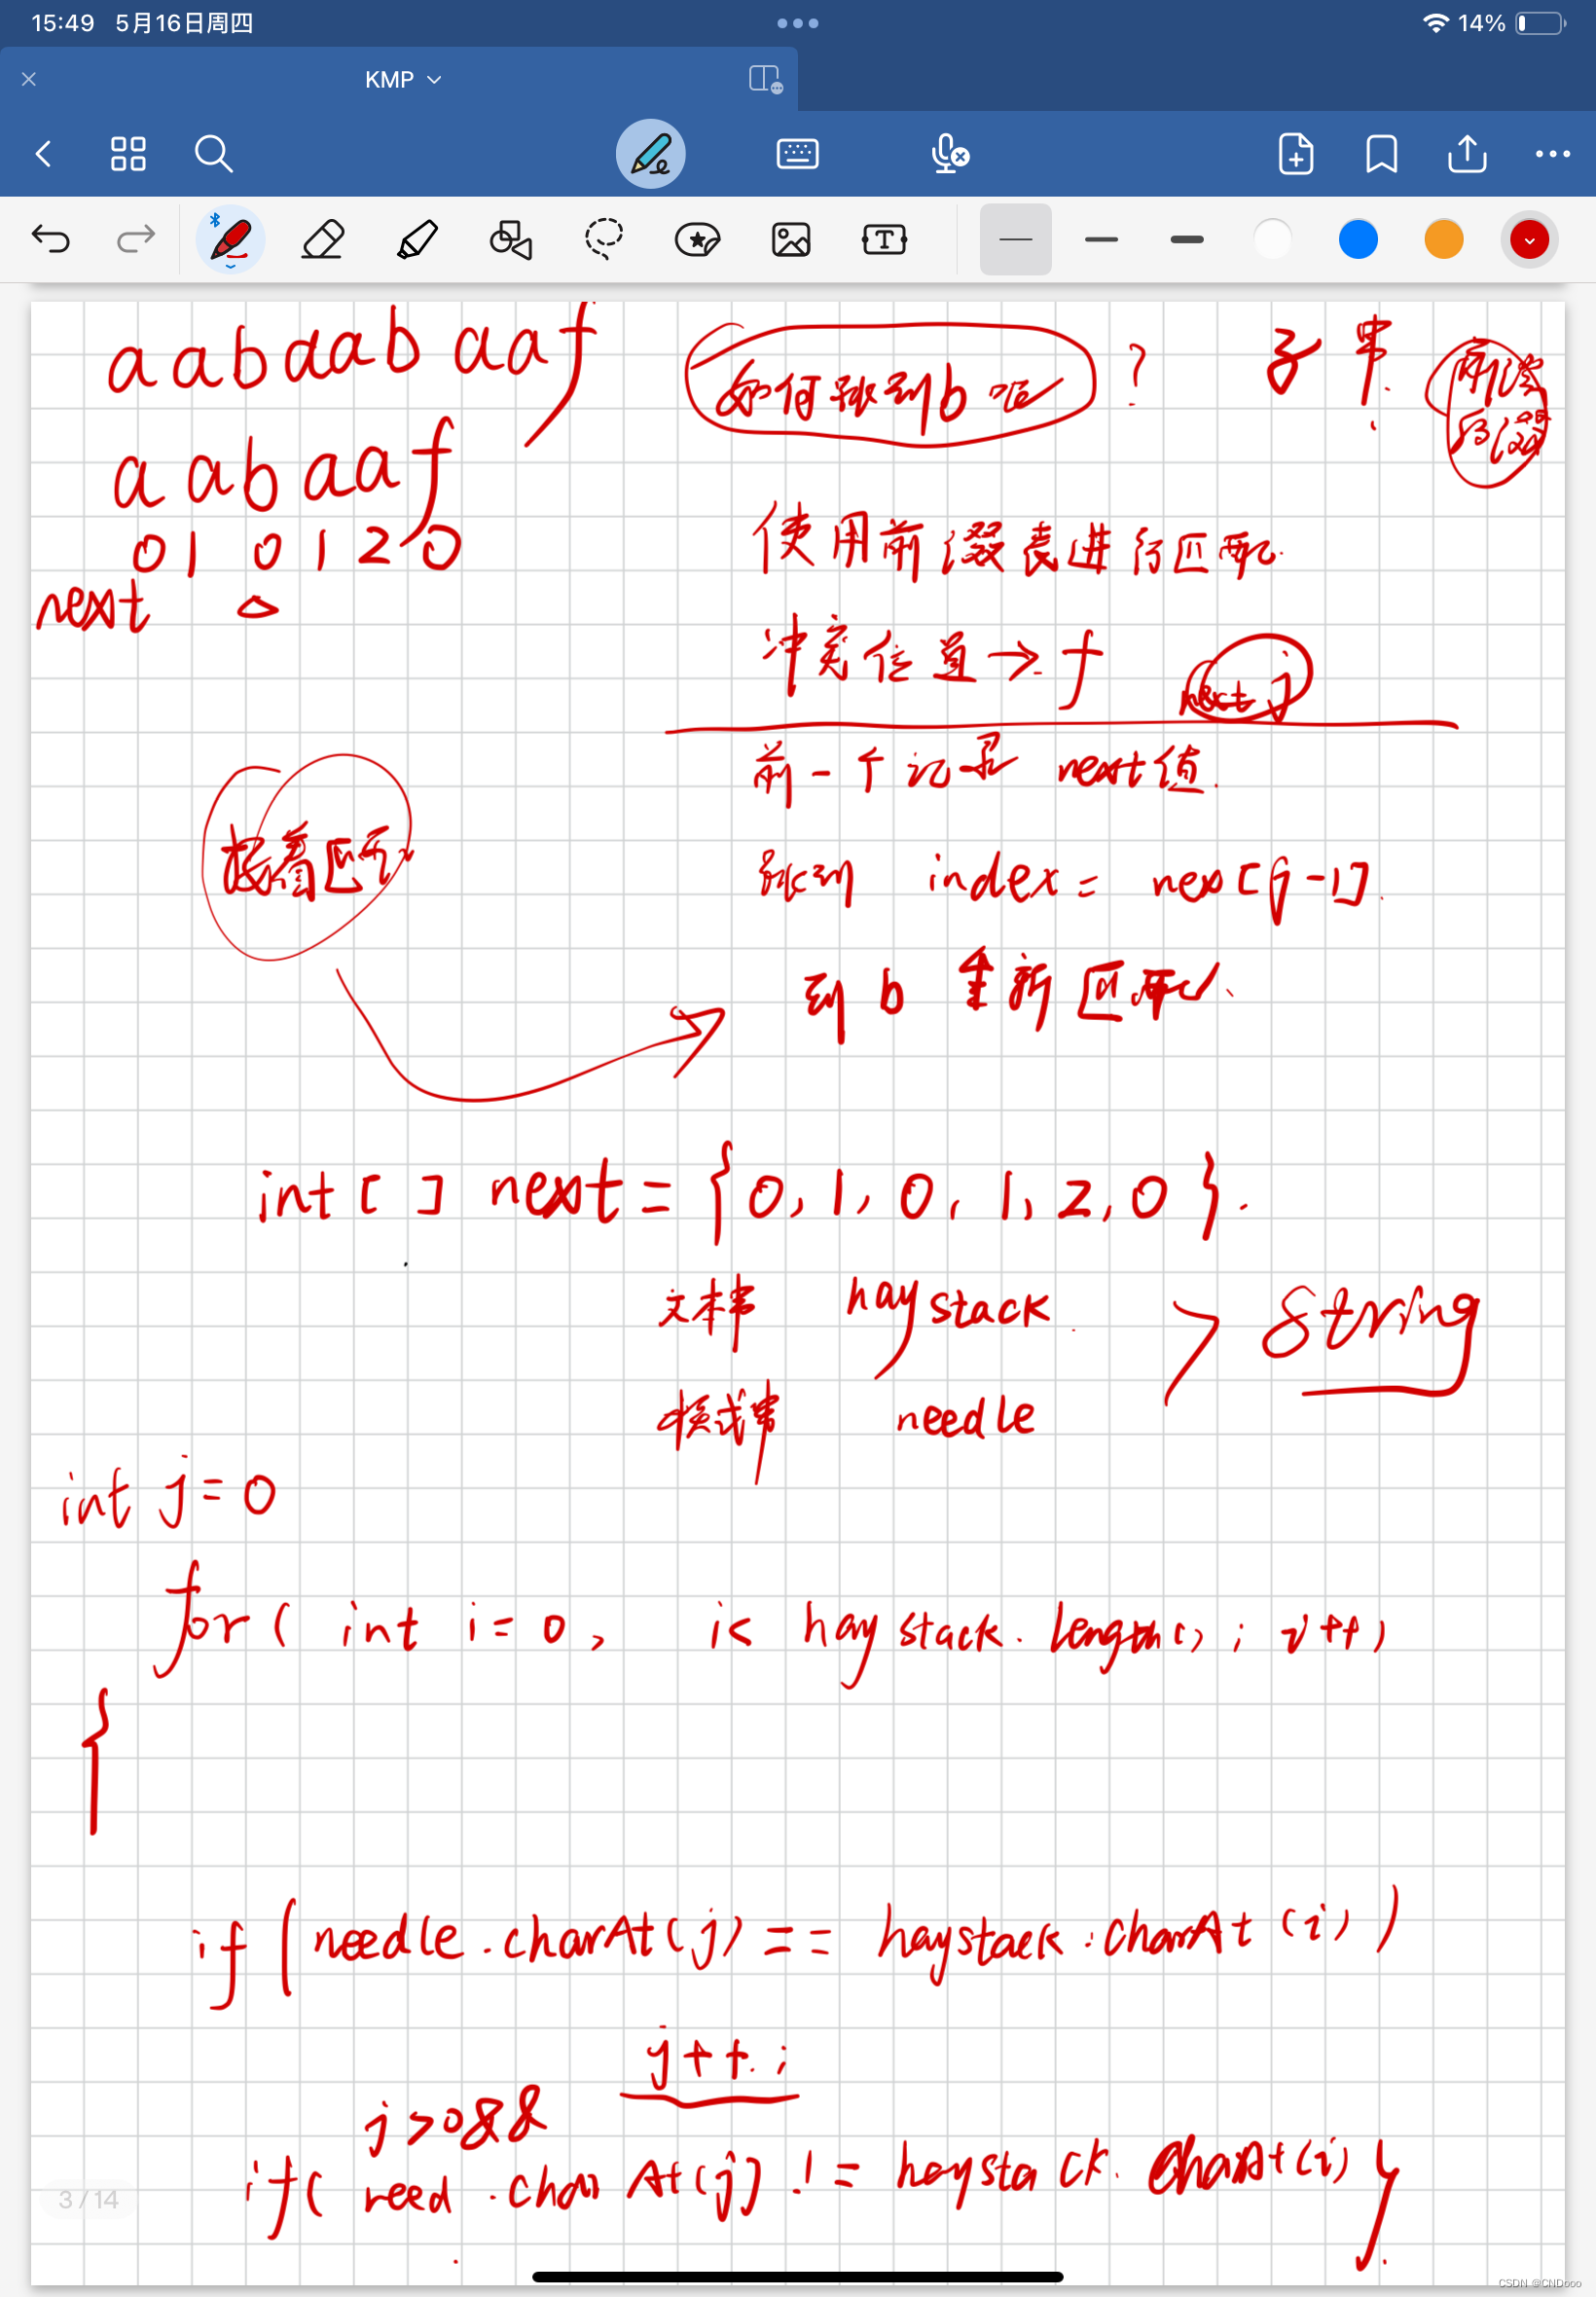 15:49 5月16日周四
14%
KMP
aabaabaaf
如何跳到b呢 ?
子串
前缀
后缀
aabaaf
0 1 0 1 2 0
next
使用前缀表进行匹配.
冲突位置→f
next j
前一个记录 next值.
接着匹配
跳到 index = nex[j-1].
到b重新匹配.
int [ ] next = {0,1,0,1,2,0}.
文本串 haystack
String
模式串 needle
int j=0
for( int i=0, i< haystack.length(); i++)
{
if (needle.charAt(j) == haystack.charAt(i))
j++;
j>0&&
if( need.charAt(j) != haystack.charAt(i)
3/14
CSDN @CNDooo